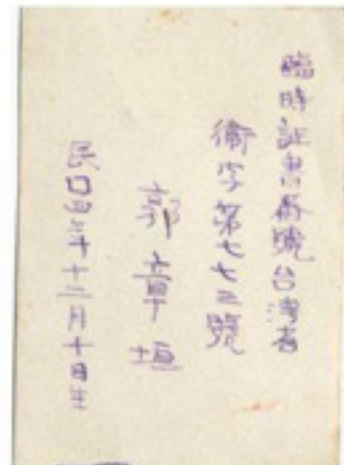 臨時証書番號台湾省
衛字第七七三號
郭章垣
民口四年十二月十日生